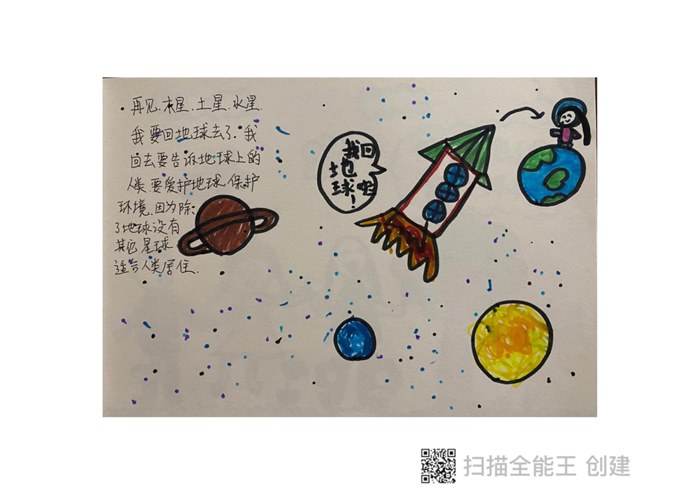 再见,木星、土星、水星
我要回地球去了.我
回去要告诉地球上的
人类要爱护地球,保护
环境,因为除
了地球没有
其它星球
适合人类居住.
回
我
地
球
啦!
扫描全能王 创建